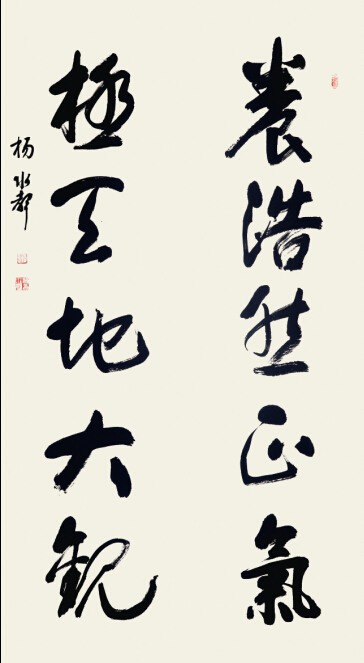 養浩然正氣
極天地大觀
杨冰都